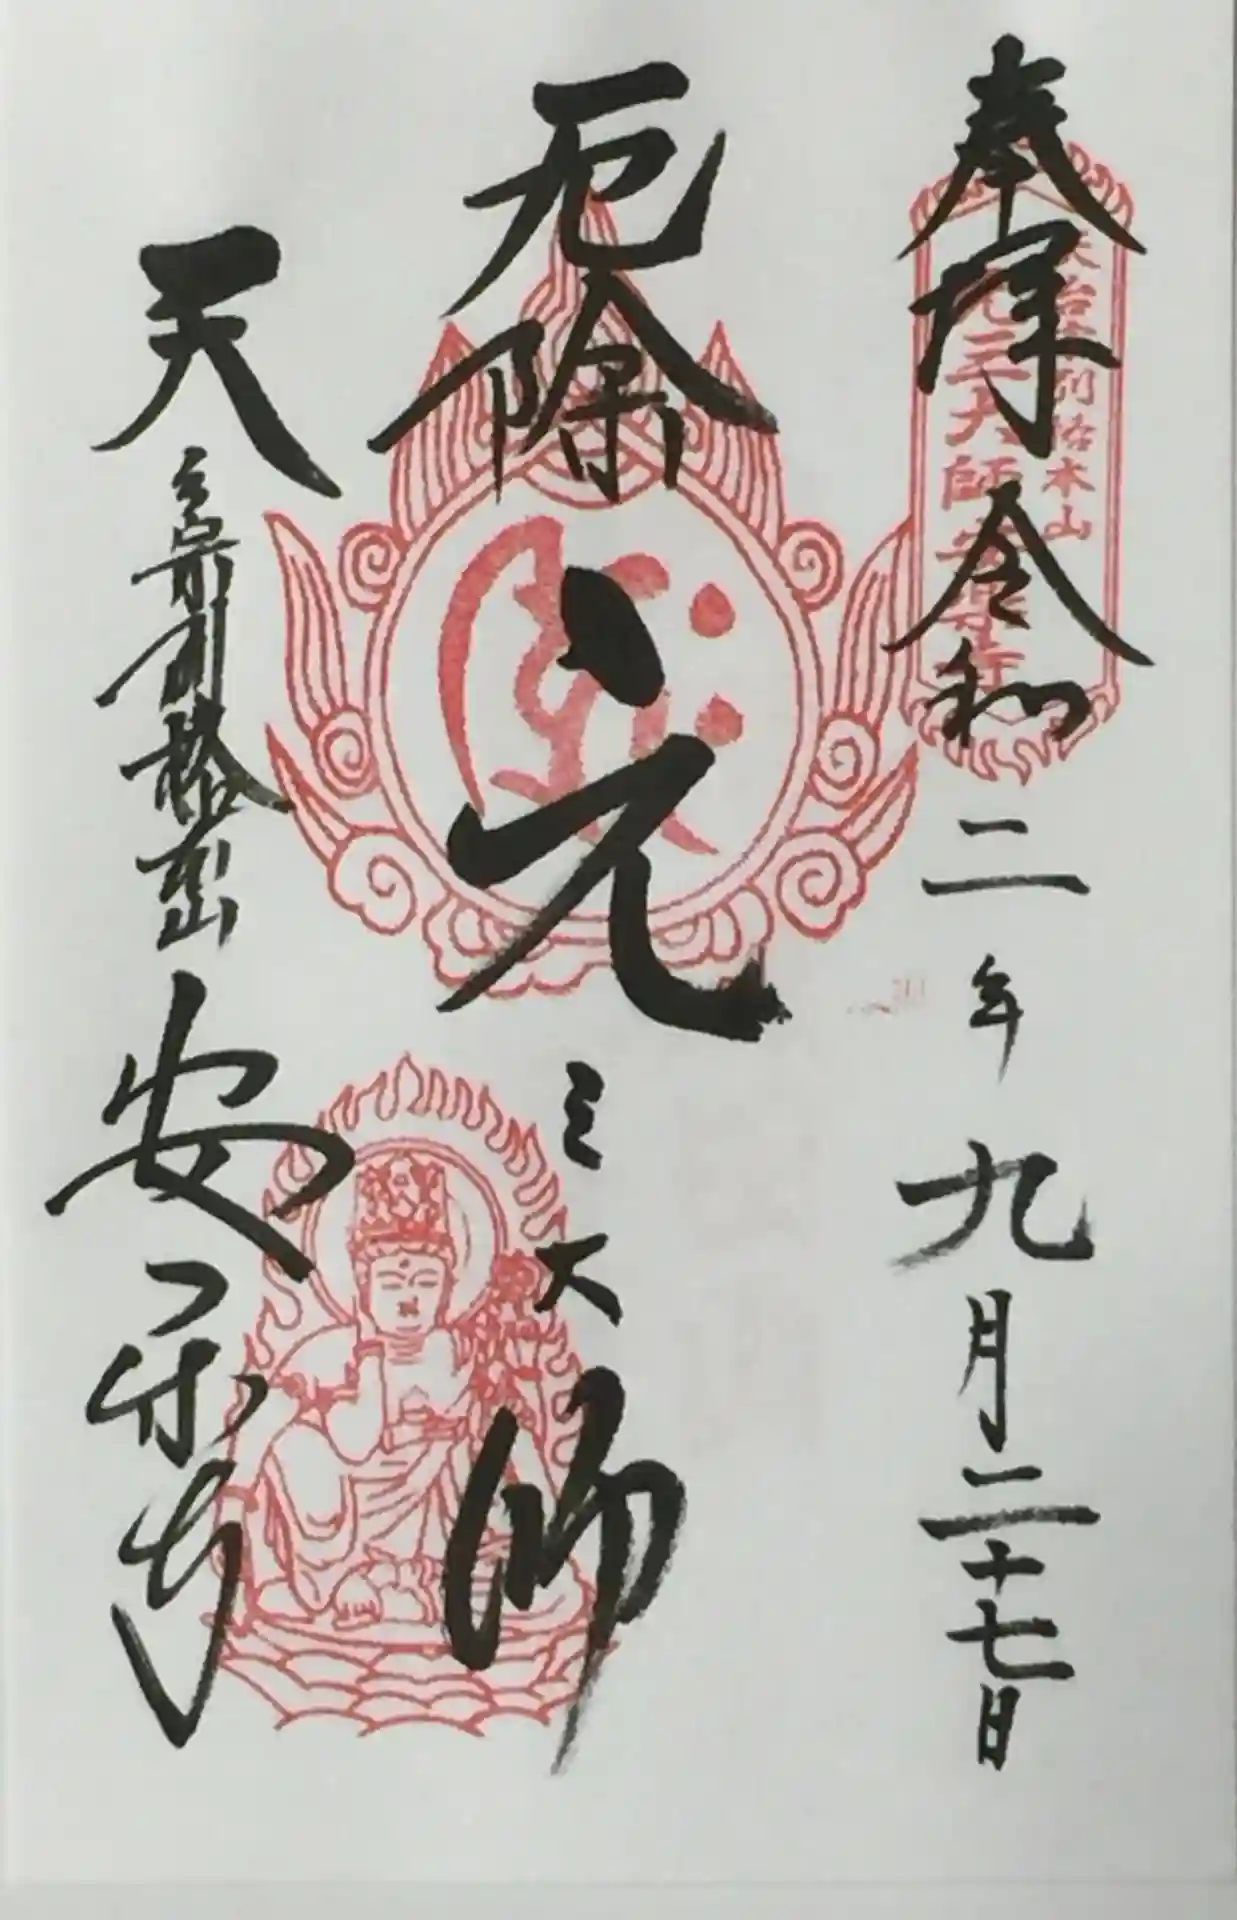 奉拝 令和二年九月二十七日
天台宗別格本山
元三大師安楽寺
厄除 元三大師
天台宗別格本山 安楽寺